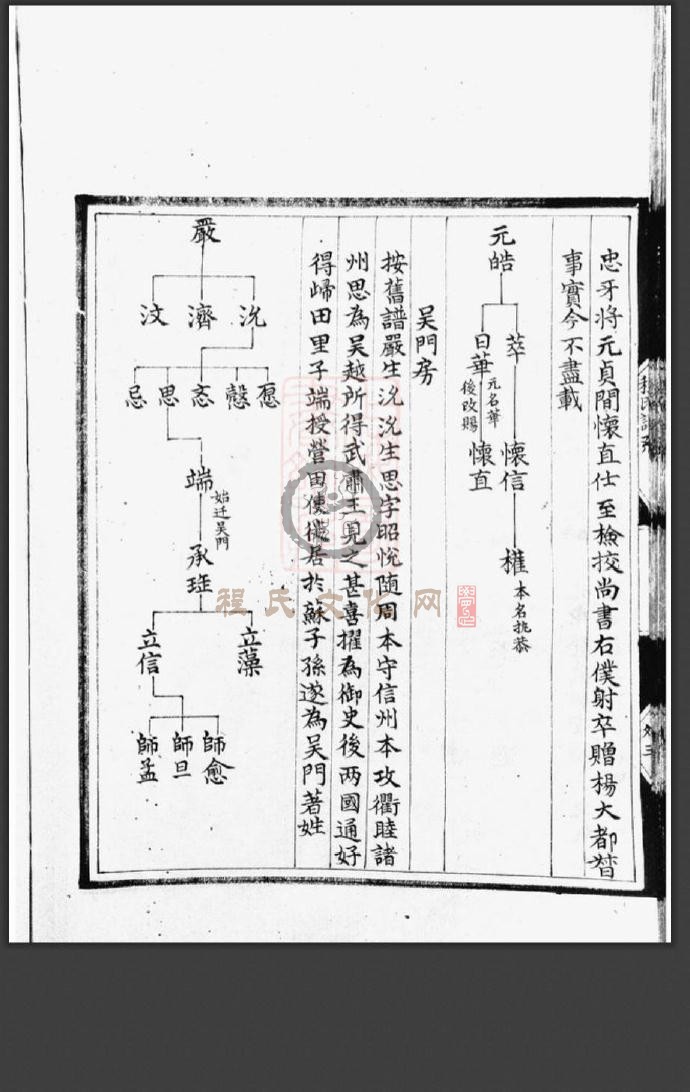 忠牙將元貞間懷直仕至檢挍尚書右僕射卒贈楊大都督
事實今不盡載
元皓
萃 懷信 權 本名執恭
日華 元名華 後改賜 懷直
吴門房
按舊譜嚴生沇沇生思字昭悅随周本守信州本攻衢睦諸
州思為吴越所得武肅王見之甚喜擢為御史後两國通好
得歸田里子端授營田使徙居於蘇子孫遂為吴門著姓
嚴
沇 濟 汶
愿 慤 忞 思 忌
端 始迁吴門
承班
立藻 立信
師愈 師旦 師孟
程氏文化网